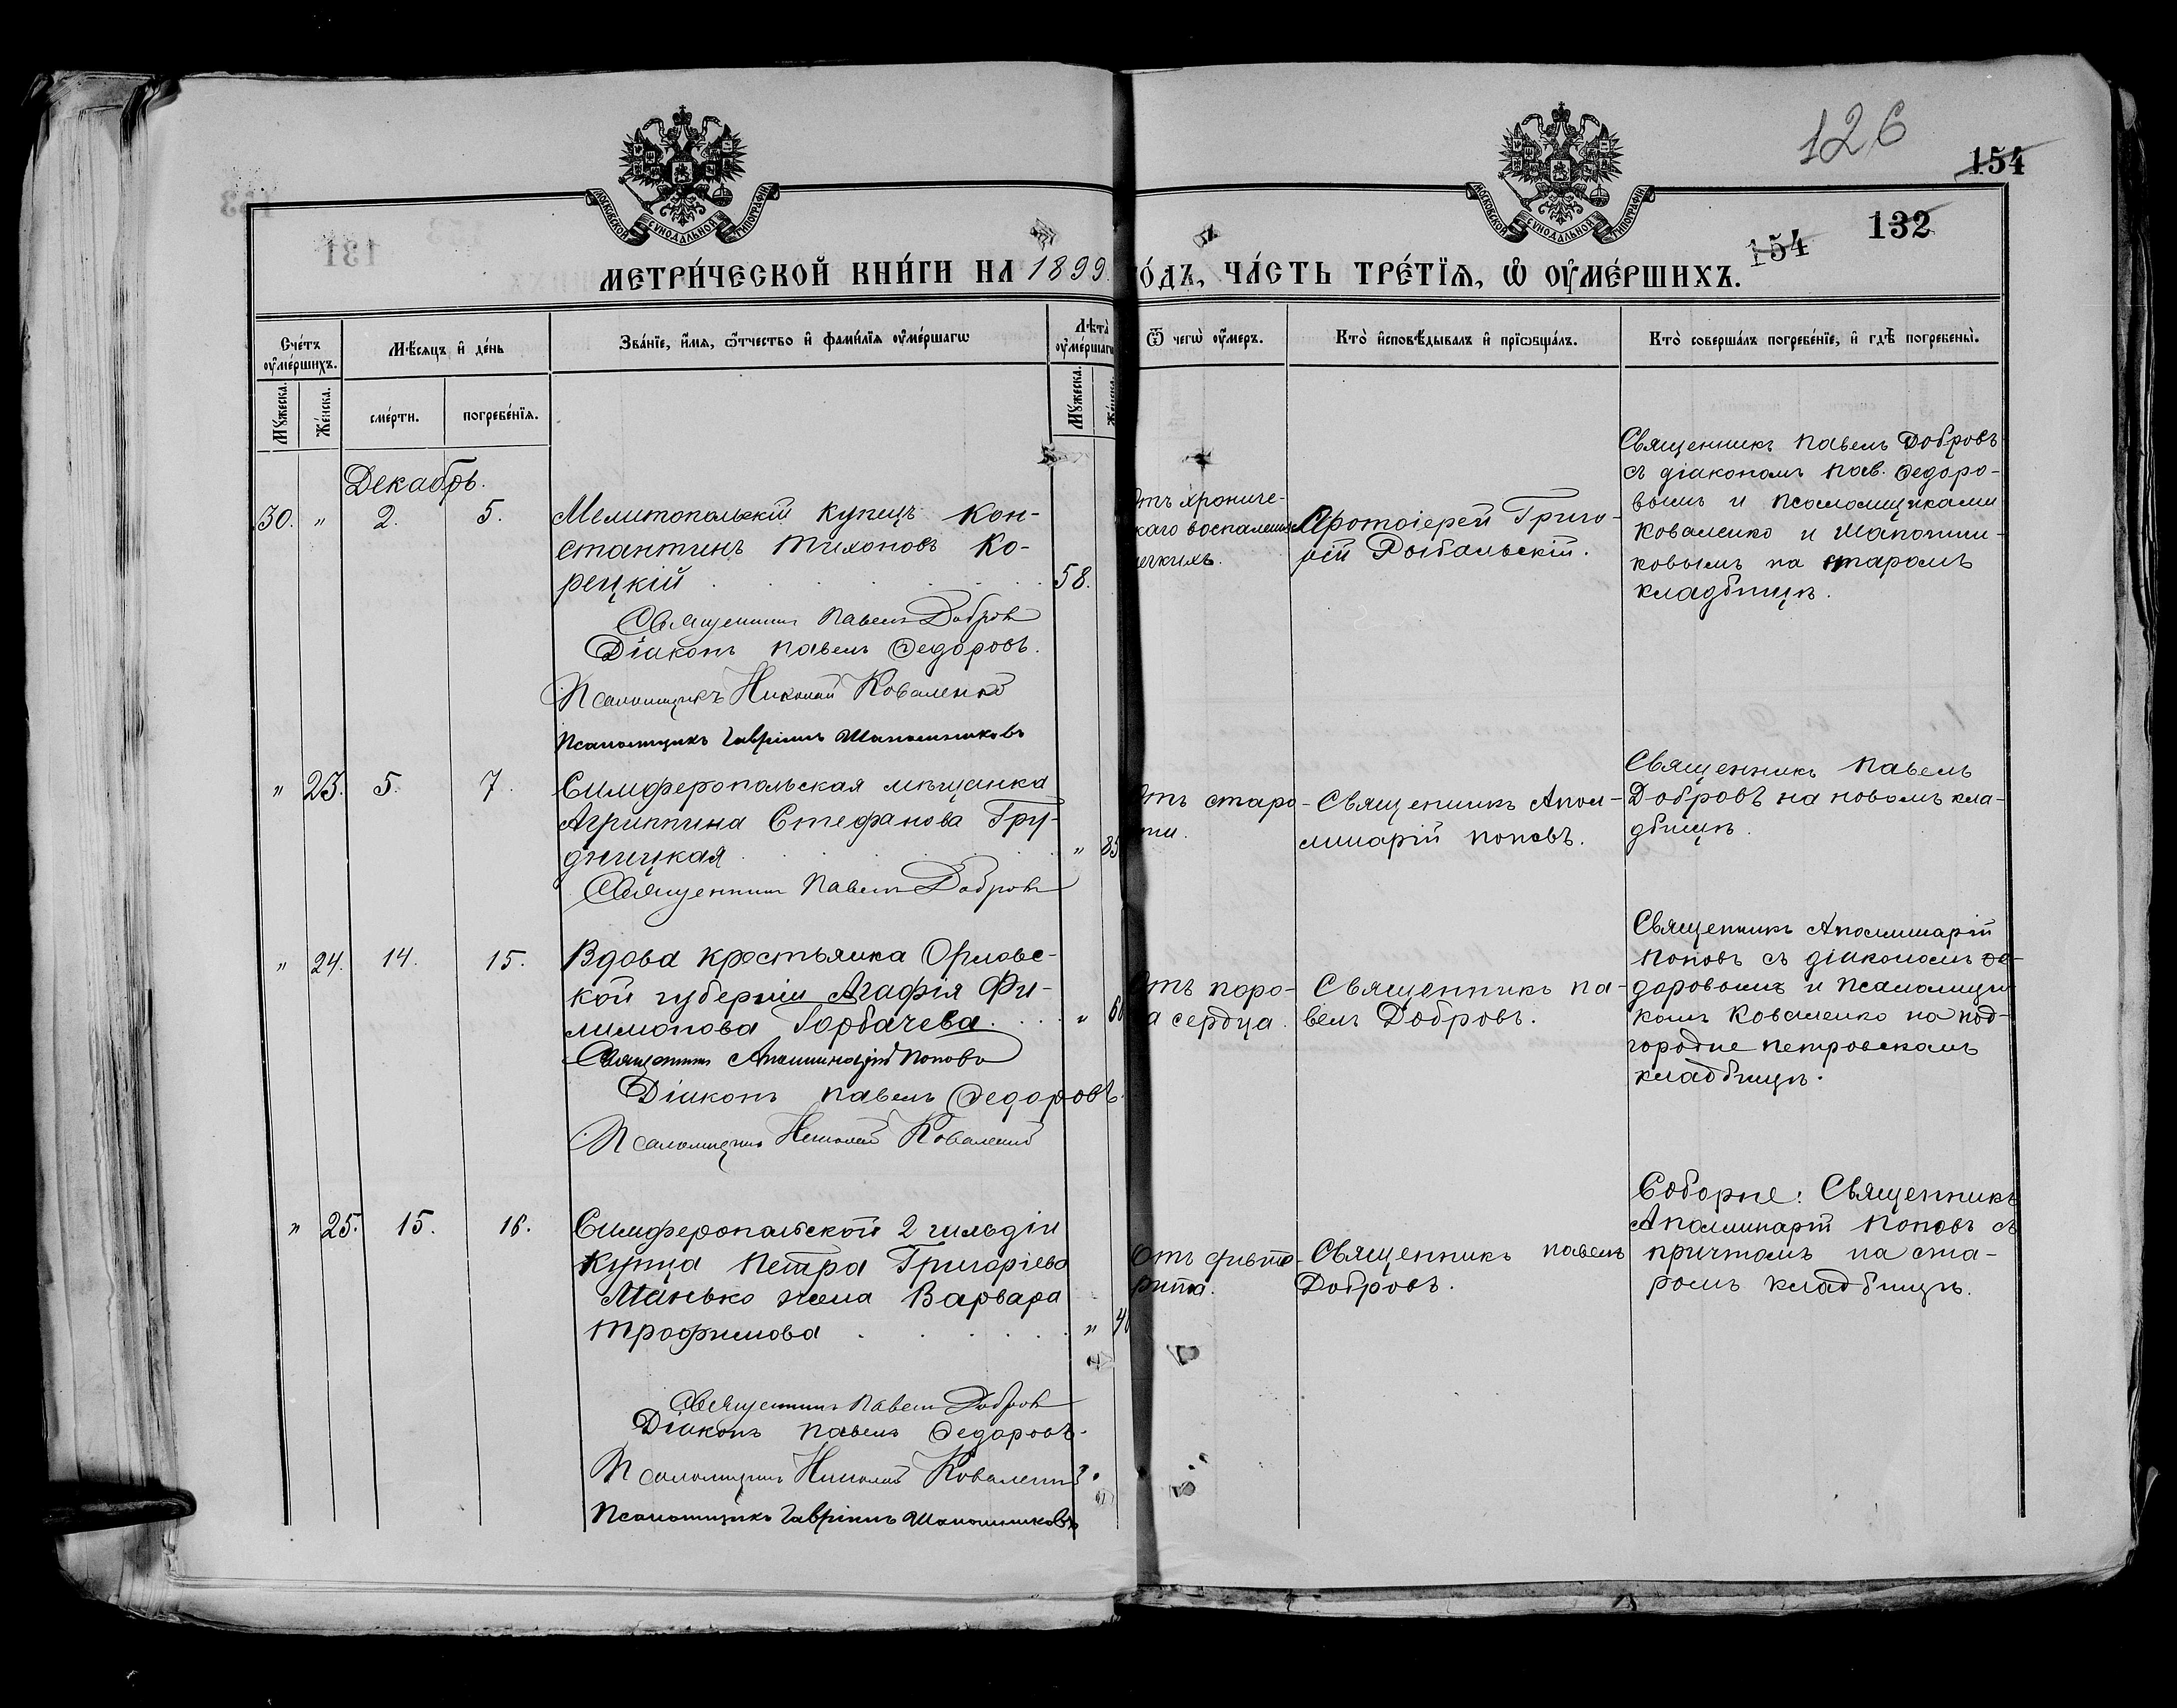 126
154
132
154
МОСКОВСКОЙ СѴНОДАЛЬНОЙ ТИПОГРАФІИ
МОСКОВСКОЙ СѴНОДАЛЬНОЙ ТИПОГРАФІИ
МЕТРИ́ЧЕСКОЙ КНИ́ГИ НА 1899.
О́ДЪ, ЧА́СТЬ ТРЕ́ТЇѦ, Ѡ҆ ОУ҆МЕ́РШИХЪ.
Сче́тъ оу҆ме́ршихъ.
Мꙋжеска.
Же́нска.
Мѣ́сяцъ и҆ де́нь
сме́рти.
погребе́нїѧ.
Зва́нїе, и҆́мѧ, ѻ҆́тчество и҆ фами́лїѧ оу҆ме́ршагѡ
Лѣта̀ оу҆ме́ршагѡ
Мꙋжеска.
Ѿ чегѡ̀ оу҆́меръ.
Кто̀ и҆сповѣ́дывалъ и҆ прїѡбща́лъ.
Кто̀ соверша́лъ погребе́нїе, и҆ гдѣ̀ погребены̀.
Декабрь.
30. " 2. 5.
Мелитопольскій купецъ Кон-
стантинъ Тихоновъ Ко-
рецкій 58.
Священникъ Павелъ Добровъ
Діаконъ Павелъ Ѳедоровъ.
Псаломщикъ Николай Коваленко
Псаломщикъ Гавріилъ Шапошниковъ
отъ хрониче-
скаго воспаленія
легкихъ.
Протоіерей Григо-
рій
Священникъ Павелъ Добровъ
съ діакономъ Пав. Ѳедоро-
вымъ и псаломщиками
Коваленко и Шапошни-
ковымъ на старомъ
кладбищѣ.
" 23. 5. 7.
Симферопольская мѣщанка
Агриппина Стефанова Гру-
дницкая " 85
Священникъ Павелъ Добровъ
Отъ старо-
сти.
Священникъ Апол-
линарій Поповъ.
Священникъ Павелъ
Добровъ на новомъ кла-
дбищѣ.
" 24. 14. 15.
Вдова крестьянка Орловс-
кой губерніи Агафія Фи-
лимонова Горбачева. " 60
Священникъ Аполлинарій Поповъ
Діаконъ Павелъ Ѳедоровъ.
Псаломщикъ Николай Коваленко
Отъ поро-
ка сердца.
Священникъ Па-
велъ Добровъ.
Священникъ Аполлинарій
Поповъ съ діакономъ Ѳе-
доровымъ и псаломщи-
комъ Коваленко на под-
городне Петровскомъ
кладбищѣ.
" 25. 15. 16.
Симферопольской 2 гильдіи
купца Петра Григоріева
Манько жена Варвара
Трофимова " 40
Священникъ Павелъ Добровъ
Діаконъ Павелъ Ѳедоровъ.
Псаломщикъ Николай Коваленко.
Псаломщикъ Гавріилъ Шапошниковъ
Священникъ Павелъ
Добровъ.
Соборне: Священникъ
Аполлинарій Поповъ съ
причтомъ на ста-
ромъ кладбищѣ.